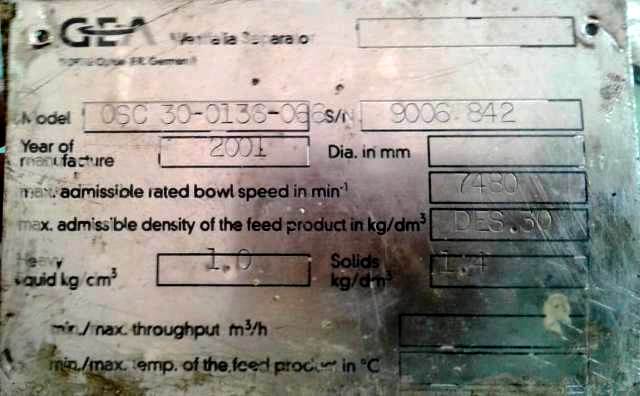 GEA Westfalia Separator
Model OSC 30-0136-066 S/N 9006 842
Year of manufacture 2001 Dia. in mm
max. admissible rated bowl speed in min⁻¹ 7480
max. admissible density of the feed product in kg/dm³ DES.30
Heavy liquid kg/cm³ 1.0 Solids kg/dm³ 1.4
min./max. throughput m³/h
min./max. temp. of the feed product in °C